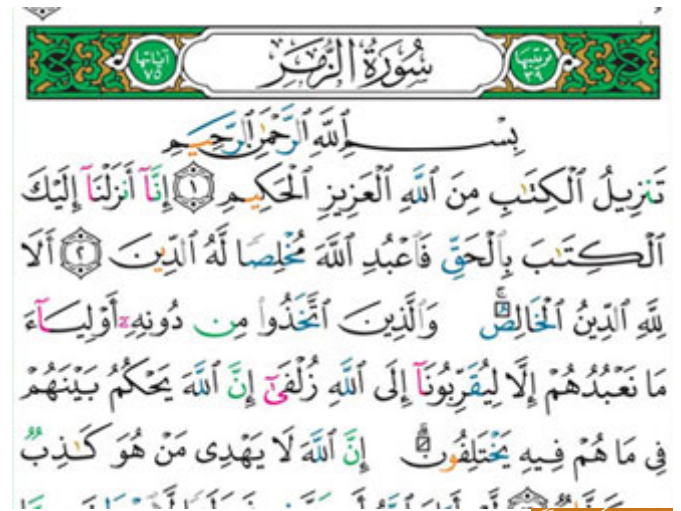 ترتيبها ٣٩ سُورَةُ الزُّمَرِ آياتها ٧٥
بِسْمِ ٱللَّهِ ٱلرَّحْمَٰنِ ٱلرَّحِيمِ
تَنزِيلُ ٱلْكِتَٰبِ مِنَ ٱللَّهِ ٱلْعَزِيزِ ٱلْحَكِيمِ ١ إِنَّآ أَنزَلْنَآ إِلَيْكَ
ٱلْكِتَٰبَ بِٱلْحَقِّ فَٱعْبُدِ ٱللَّهَ مُخْلِصًا لَّهُ ٱلدِّينَ ٢ أَلَا
لِلَّهِ ٱلدِّينُ ٱلْخَالِصُ ۚ وَٱلَّذِينَ ٱتَّخَذُوا۟ مِن دُونِهِۦٓ أَوْلِيَآءَ
مَا نَعْبُدُهُمْ إِلَّا لِيُقَرِّبُونَآ إِلَى ٱللَّهِ زُلْفَىٰٓ إِنَّ ٱللَّهَ يَحْكُمُ بَيْنَهُمْ
فِى مَا هُمْ فِيهِ يَخْتَلِفُونَ ۗ إِنَّ ٱللَّهَ لَا يَهْدِى مَنْ هُوَ كَٰذِبٌ